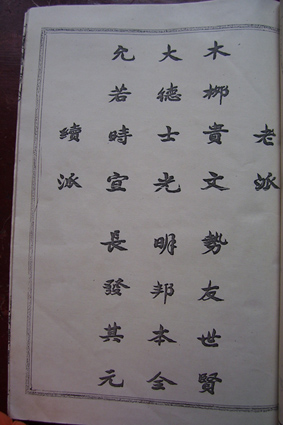 老派
木貴文勢友世賢
大德士光明邦本全
允若時宣長發其元
續派